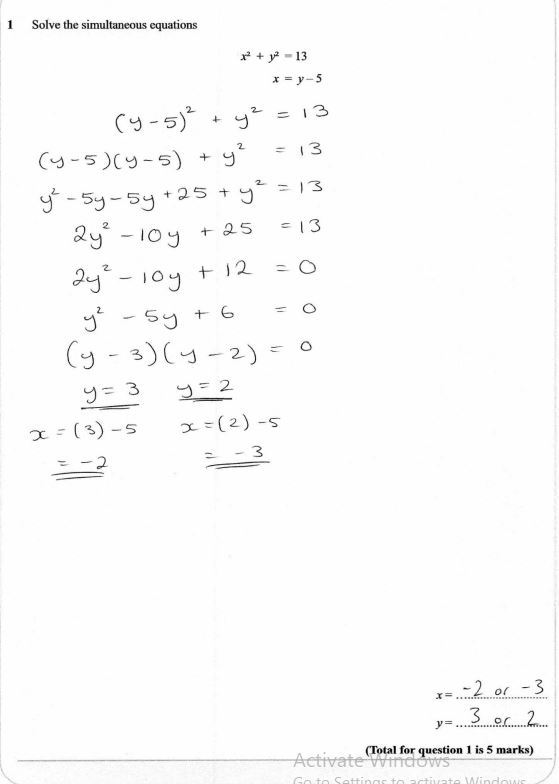 1 Solve the simultaneous equations
x² + y² = 13
x = y – 5
(y - 5)² + y² = 13
(y - 5)(y - 5) + y² = 13
y² - 5y - 5y + 25 + y² = 13
2y² - 10y + 25 = 13
2y² - 10y + 12 = 0
y² - 5y + 6 = 0
(y - 3)(y - 2) = 0
y = 3 y = 2
x = (3) - 5 x = (2) - 5
= -2 = -3
x = -2 or -3
y = 3 or 2
(Total for question 1 is 5 marks)
Activate Windows
Go to Settings to activate Windows